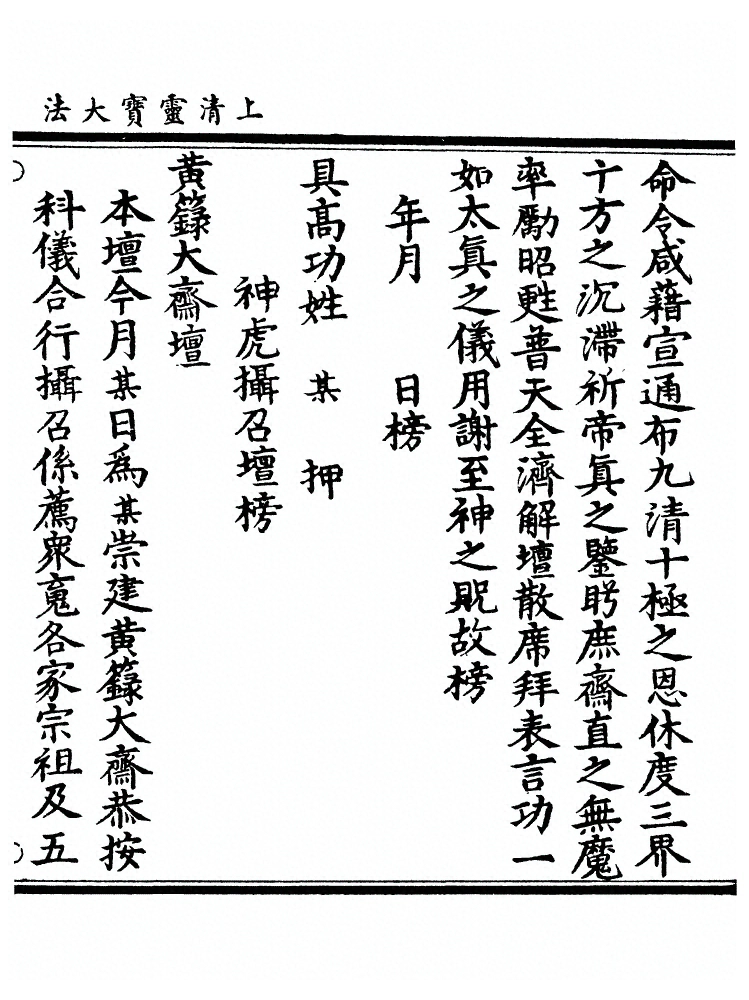 上清靈寶大法
命令咸藉宣通布九清十極之恩休度三界
十方之沉滯祈帝眞之鑒盻庶齋直之無魔
率勵昭甦普天全濟解壇散席拜表言功一
如太眞之儀用謝至神之貺故榜
年月　日榜
具高功姓　某　押
神虎攝召壇榜
黃籙大齋壇
本壇今月某日爲某崇建黃籙大齋恭按
科儀合行攝召係薦衆䰟各家宗祖及五